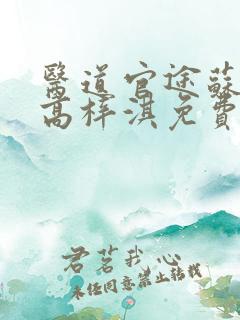 醫道官途蘇
高梓淇免費
君茗我心
未經同意禁止轉載